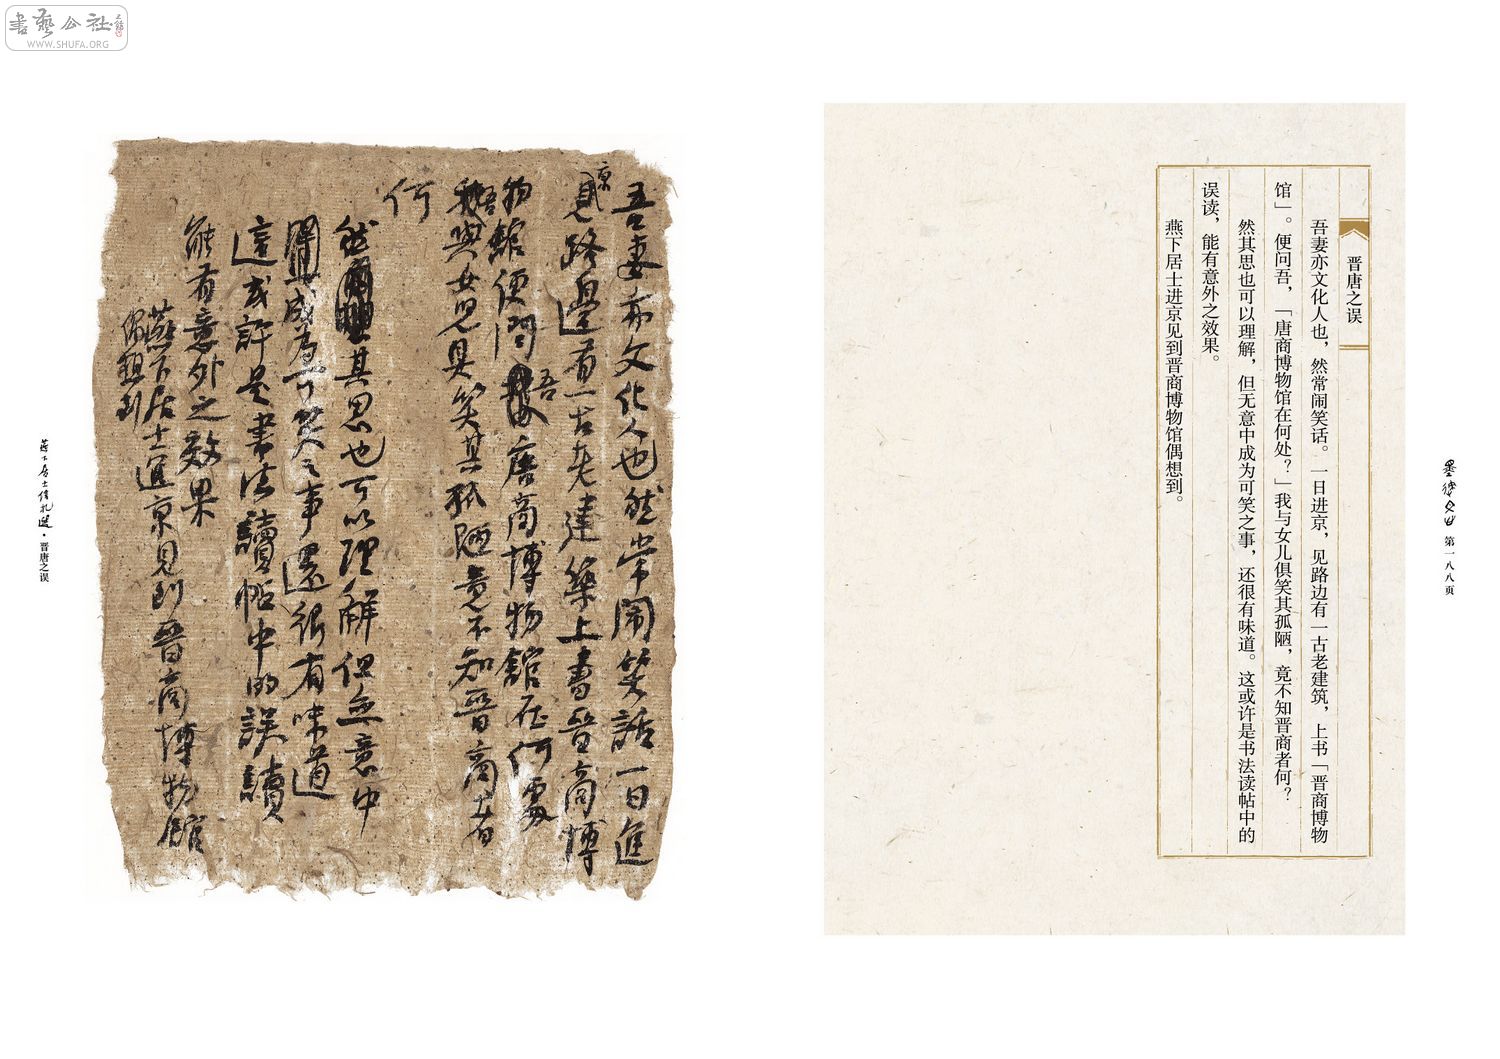 書藝公社
WWW.SHUFA.ORG
第一八八页
晋唐之误
吾妻亦文化人也，然常闹笑话。一日进京，见路边有一古老建筑，上书「晋商博物
馆」。便问吾，「唐商博物馆在何处？」我与女儿俱笑其孤陋，竟不知晋商者何？
然其思也可以理解，但无意中成为可笑之事，还很有味道。这或许是书法读帖中的
误读，能有意外之效果。
燕下居士进京见到晋商博物馆偶想到。
吾妻亦文化人也然常闹笑話一日進
京
見路邊有一古老建築上書晉商博
物館便問吾唐商博物館在何處
吾與女兒具笑其孤陋竟不知晉商者
何
然其思也可以理解但無意中
成為可笑之事還很有味道
這或許是書法讀帖中的誤讀
能有意外之效果
燕下居士進京見到晉商博物館
偶想到
燕下居士信札選·晋唐之误